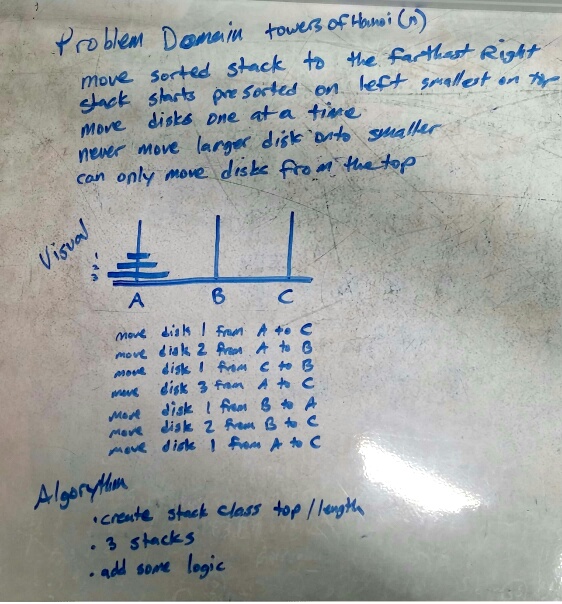 Problem Domain towers of Hanoi (n)
move sorted stack to the farthest Right
stack starts presorted on left smallest on top
move disks one at a time
never move larger disk onto smaller
can only move disks from the top
Visual
1
2
3
A B C
move disk 1 from A to C
move disk 2 from A to B
move disk 1 from C to B
move disk 3 from A to C
move disk 1 from B to A
move disk 2 from B to C
move disk 1 from A to C
Algorythm
• create stack class top/length
• 3 stacks
• add some logic